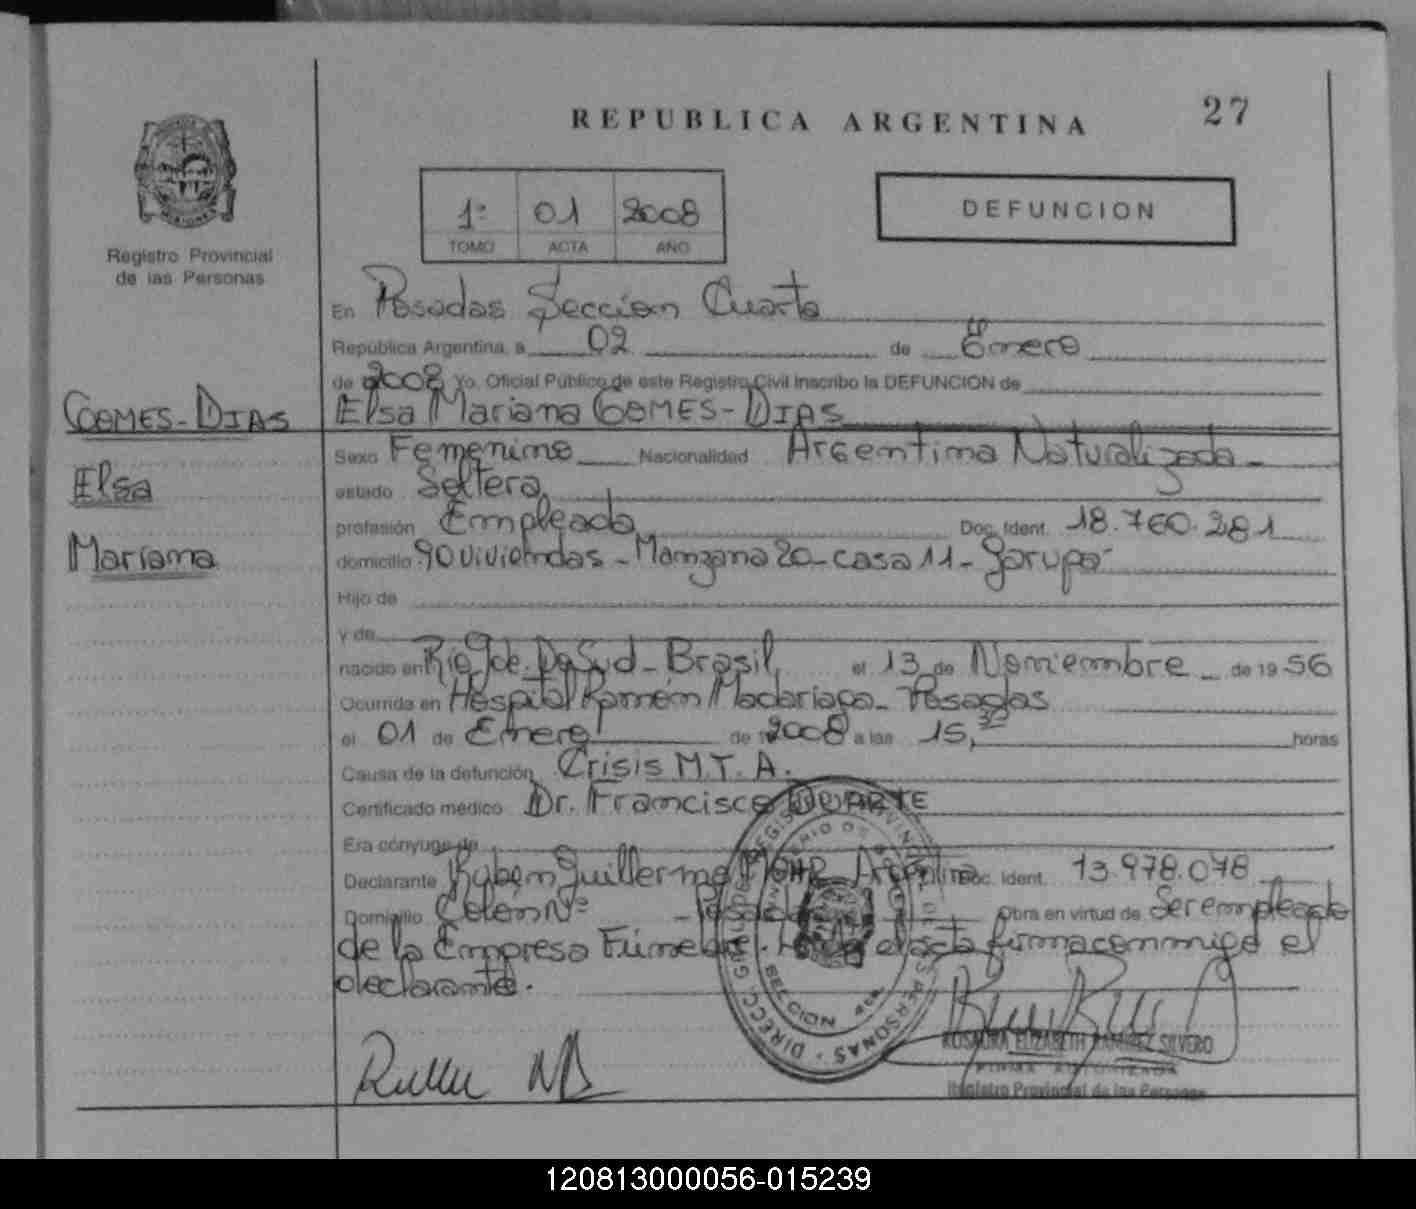 REPUBLICA ARGENTINA
27
Registro Provincial
de las Personas
1º 01 2008
TOMO ACTA AÑO
DEFUNCION
En Posadas Sección Cuarta
República Argentina, a 02 de Enero
de 2008 Yo, Oficial Público de este Registro Civil inscribo la DEFUNCION de
GOMES-DIAS
Elsa
Mariana
Elsa Mariana GOMES-DIAS
Sexo Femenino Nacionalidad Argentina Naturalizada
estado Soltera
profesión Empleada Doc. Ident. 18.760.281
domicilio 90 viviendas - Manzana 20 - casa 11 - Garupá
Hijo de
y de
nacido en Río Gde. Do Sud - Brasil el 13 de Noviembre de 19 56
Ocurrida en Hospital Ramón Madariaga - Posadas
el 01 de Enero de 2008 a las 15,30 horas
Causa de la defunción Crisis M.T.A.
Certificado médico Dr. Francisco DUARTE
Era cónyuge de
Declarante Rubén Guillermo MOHR Argentina Doc. Ident. 13.978.078
Domicilio Colón Nº - Posadas Obra en virtud de Ser empleado
de la Empresa Fúnebre. el acta firma conmigo el
declarante.
SECCION 4ta
ROSAURA ELIZABETH RAMIREZ SILVERO
FIRMA AUTORIZADA
Registro Provincial de las Personas
120813000056-015239